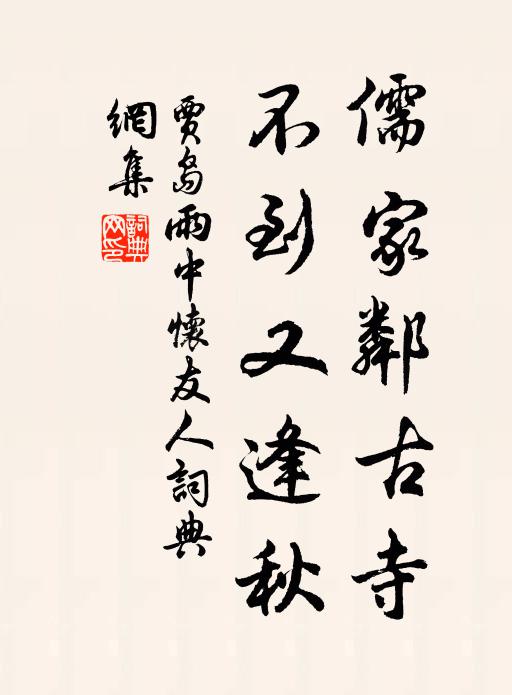 儒家鄰古寺
不到又逢秋
賈島雨中懷友人詞典
網集
詞典網印